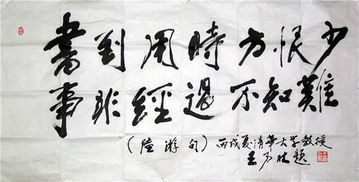 書到用時方恨少
事非經過不知難
（陸游句）丙戌夏清華大学教授
王 題